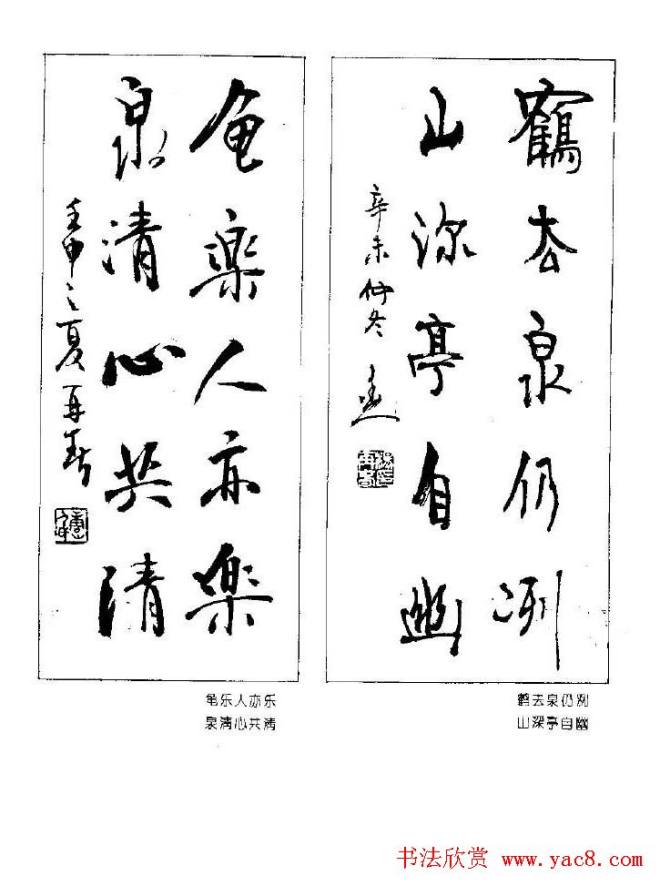 鶴去泉仍冽
山深亭自幽
辛未仲冬
鱼樂人亦樂
泉清心共清
壬申之夏再春
鹤去泉仍冽
山深亭自幽
龟乐人亦乐
泉清心共清
书法欣赏 www.yac8.com